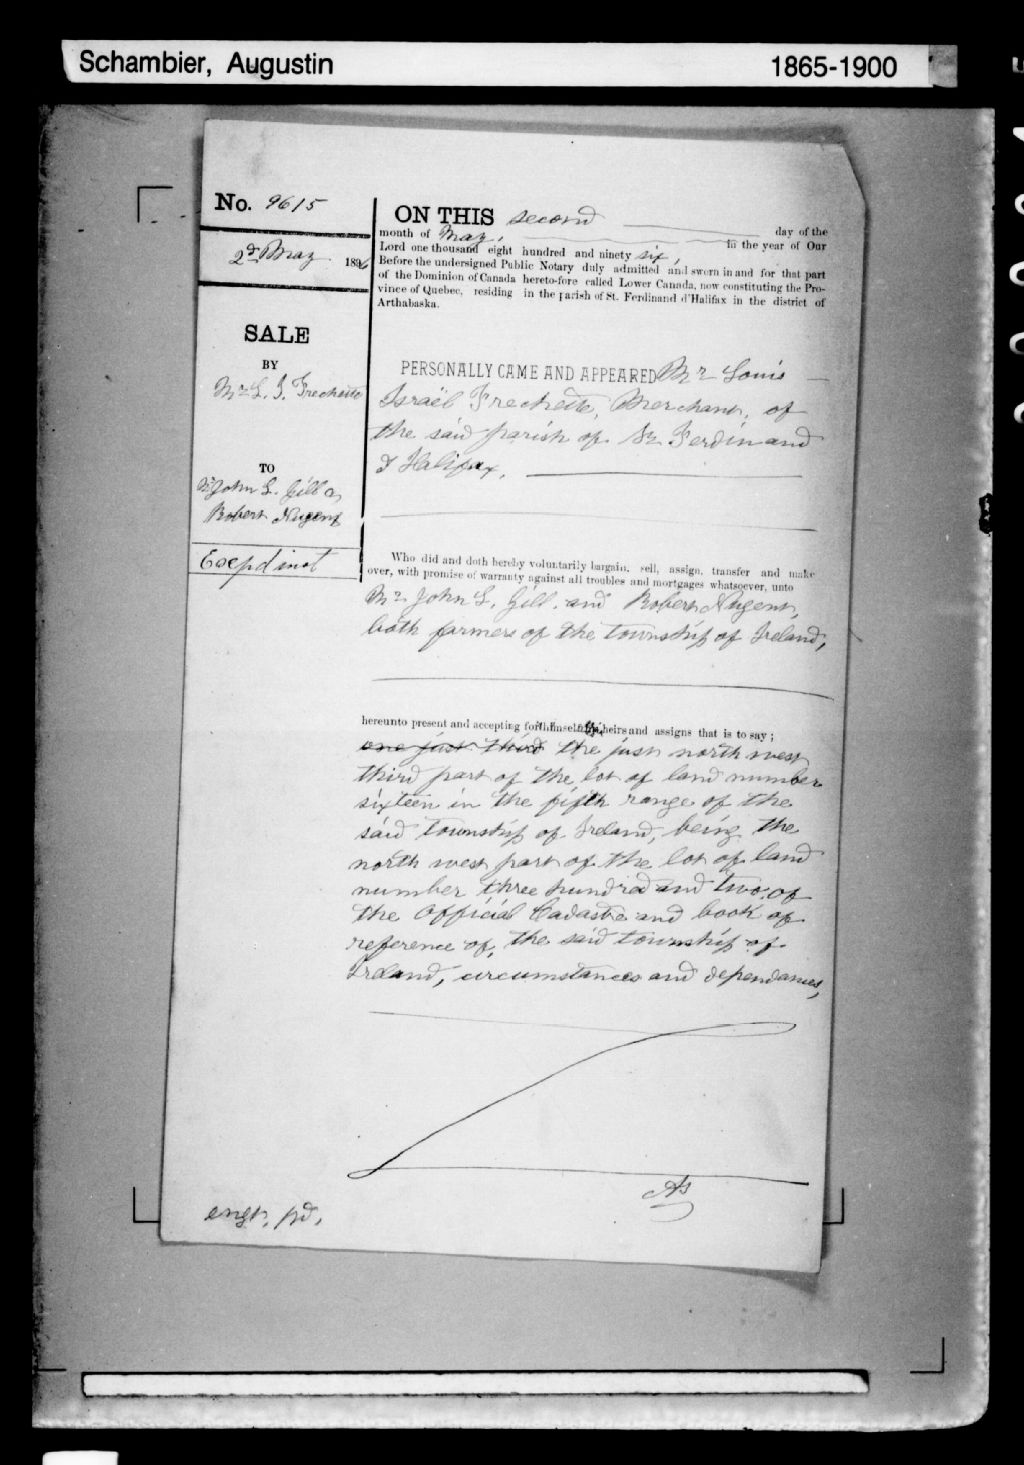 Schambier, Augustin
1865-1900
No. 9615
2d May 1896
SALE
BY
Mr L. I. Frechette
TO
Mr John L. Gill &
Robert Nugent
ON THIS second day of the
month of May, in the year of Our
Lord one thousand eight hundred and ninety six,
Before the undersigned Public Notary duly admitted and sworn in and for that part
of the Dominion of Canada hereto-fore called Lower Canada, now constituting the Pro-
vince of Quebec, residing in the parish of St. Ferdinand d'Halifax in the district of
Arthabaska.
PERSONALLY CAME AND APPEARED Mr Louis
Israël Frechette, Merchant, of
the said parish of St Ferdinand
d Halifax,
Who did and doth hereby voluntarily bargain, sell, assign, transfer and make
over, with promise of warranty against all troubles and mortgages whatsoever, unto
Mr John L. Gill and Robert Nugent,
both farmers of the township of Ireland,
hereunto present and accepting for heirs and assigns that is to say ;
one just third the just north west
third part of the lot of land number
sixteen in the fifth range of the
said township of Ireland, being the
north west part of the lot of land
number three hundred and two of
the Official Cadastre and book of
reference of the said township of
Ireland, circumstances and dependances,
engr. pd.
AS